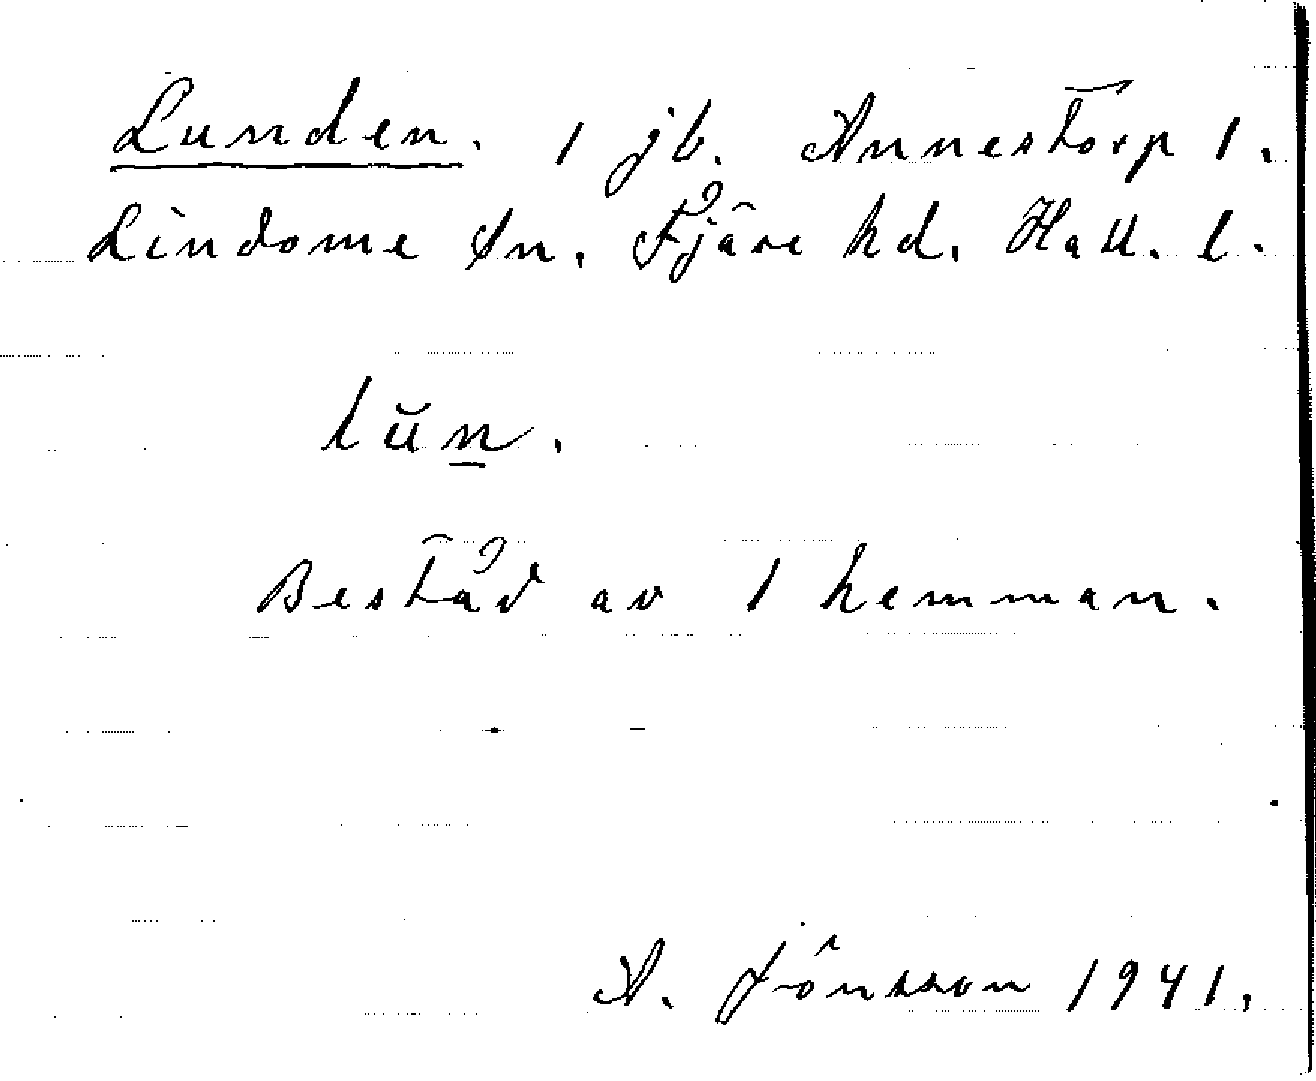 Lunden. 1 jb. Annestorp 1.
Lindome sn. Fjäre hd. Hall. l.
lŭn̲.
Består av 1 hemman.
A. Jönsson 1941.